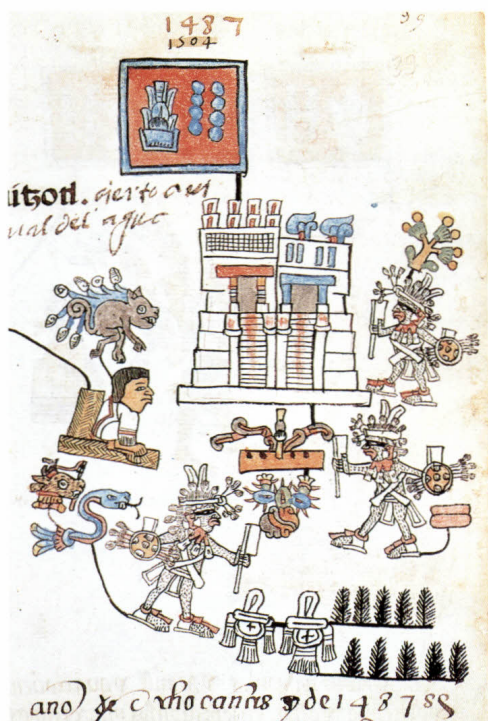 1487
39
1504
39
uitzotl. cierto ani
mal del agua
ano de ocho cañas y de 1487 88